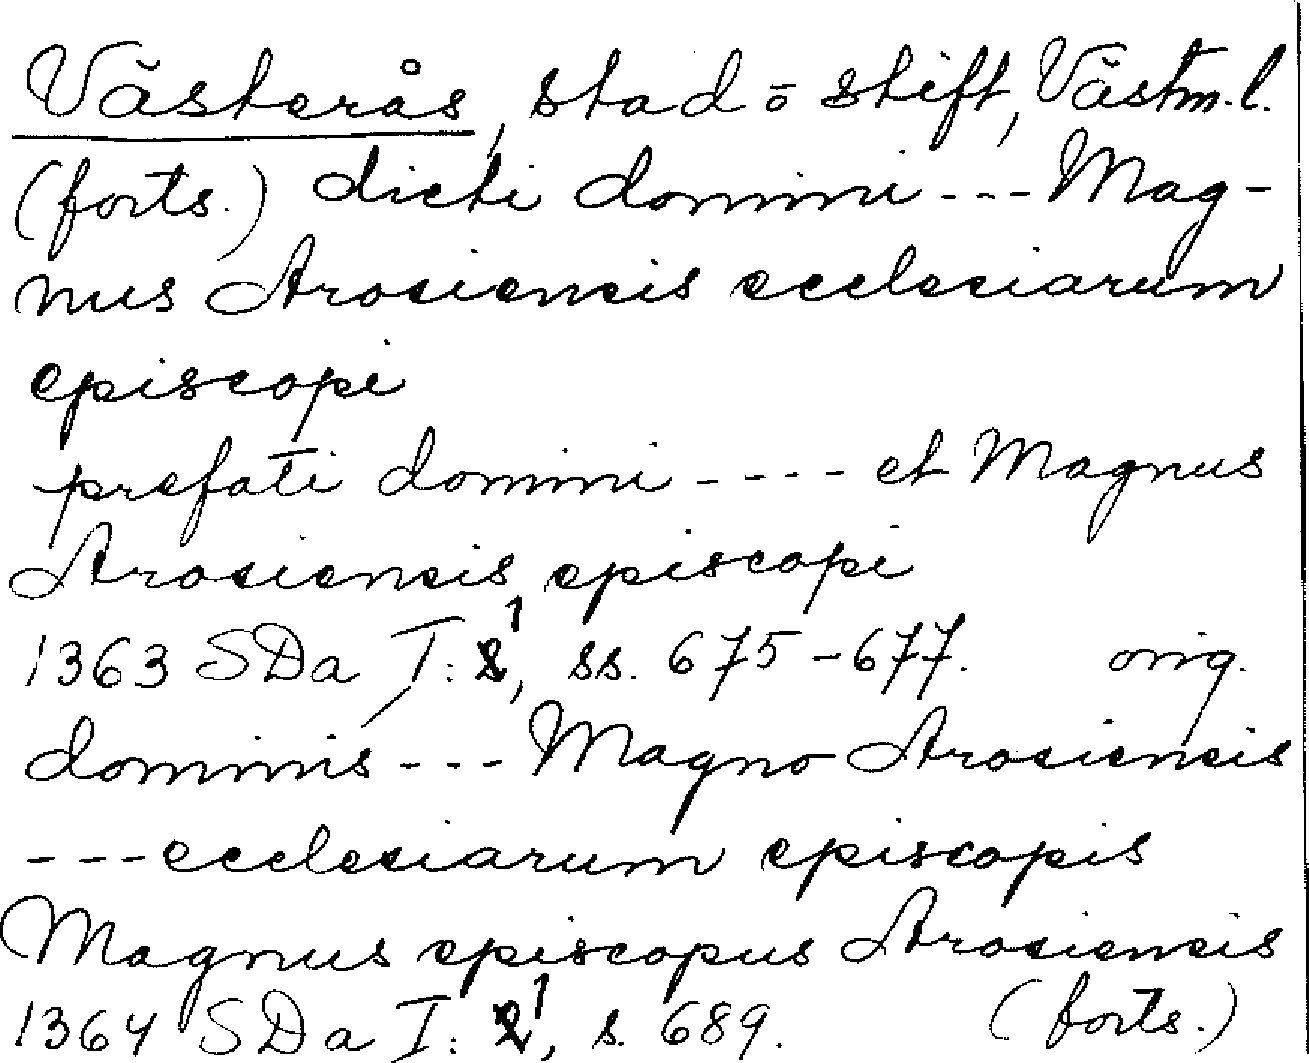 Västerås, stad ō stift, Västm.l.
(forts.) dicti domini --- Mag-
nus Arosiensis ecclesiarum
episcopi
prefati domini ---- et Magnus
Arosiensis episcopi
1363 SDa I: 1, ss. 675-677. orig.
dominis --- Magno Arosiensis
--- ecclesiarum episcopis
Magnus episcopus Arosiensis
1364 SDa I: 1, s. 689. (forts.)